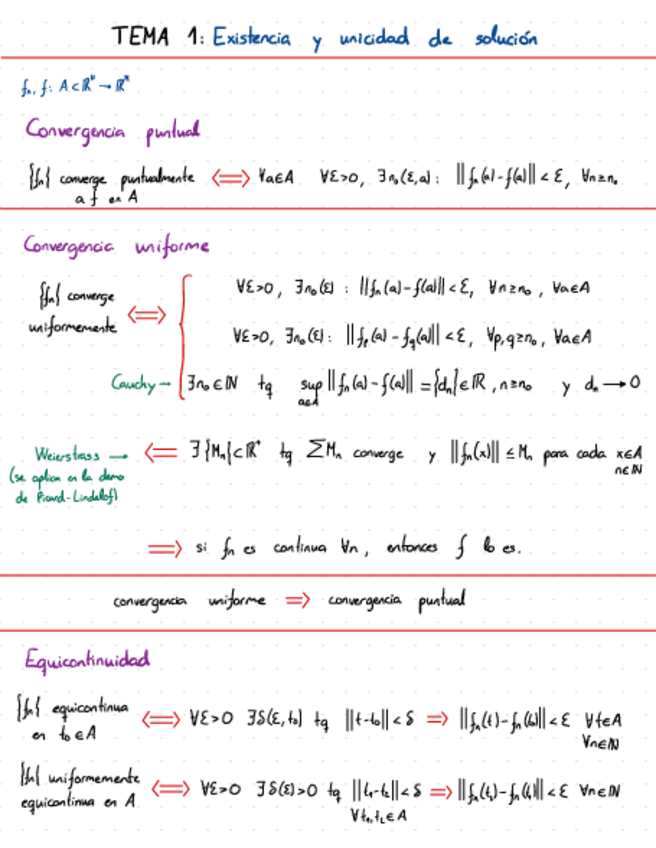 TEMA 1: Existencia y unicidad de solución
fₙ, f: A⊂ℝᵏ → ℝⁿ
Convergencia puntual
{fₙ} converge puntualmente a f en A ⟺ ∀a∈A ∀ε>0, ∃n₀(ε,a): ||fₙ(a)-f(a)|| < ε, ∀n≥n₀
Convergencia uniforme
{fₙ} converge uniformemente ⟺
∀ε>0, ∃n₀(ε) : ||fₙ(a)-f(a)|| < ε, ∀n≥n₀, ∀a∈A
∀ε>0, ∃n₀(ε): ||fₚ(a)-f_q(a)|| < ε, ∀p,q≥n₀, ∀a∈A
Cauchy → ∃n₀∈ℕ tq sup a∈A ||fₙ(a)-f(a)|| = {dₙ}∈ℝ, n≥n₀ y dₙ → 0
Weierstrass → ⟸ ∃{Mₙ}⊂ℝ⁺ tq ∑Mₙ converge y ||fₙ(x)|| ≤ Mₙ para cada x∈A n∈ℕ
(se aplica en la demo
de Picard-Lindelöf)
⟹ si fₙ es continua ∀n, entonces f lo es.
convergencia uniforme ⟹ convergencia puntual
Equicontinuidad
{fₙ} equicontinua en t₀∈A ⟺ ∀ε>0 ∃δ(ε,t₀) tq ||t-t₀|| < δ ⟹ ||fₙ(t)-fₙ(t₀)|| < ε ∀t∈A ∀n∈ℕ
{fₙ} uniformemente equicontinua en A ⟺ ∀ε>0 ∃δ(ε)>0 tq ||t₁-t₂|| < δ ⟹ ||fₙ(t₁)-fₙ(t₂)|| < ε ∀n∈ℕ
∀t₁,t₂∈A